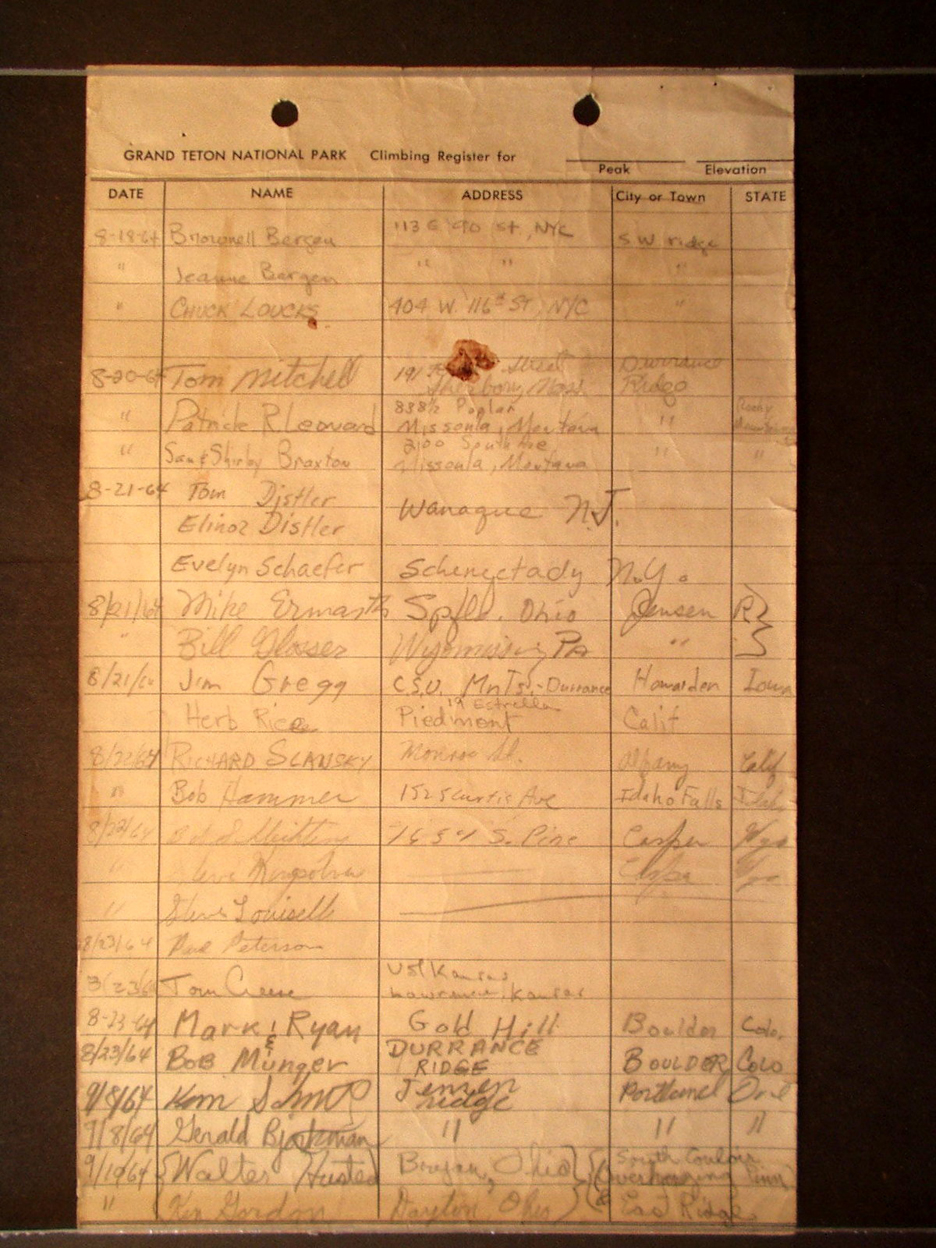 GRAND TETON NATIONAL PARK Climbing Register for
Peak Elevation
DATE NAME ADDRESS City or Town STATE
8-18-64 Brownell Bergen 113 E 90 St, NYC SW ridge
" Jeanne Bergen " " "
" CHUCK LOUCKS 404 W. 116th ST, NYC "
8-20-64 Tom Mitchell 191 Street Durrance
Mass. Ridge
" Patrick R. Leonard 838½ Poplar "
Missoula, Montana
" Sam & Shirley Braxton 2100 South Ave " "
Missoula, Montana
8-21-64 Tom Distler Wanaque N.J.
Elinor Distler
Evelyn Schaefer Schenectady N.Y.
8/21/64 Mike Ermarth Spfld. Ohio Jensen R
" Bill Glosser Wyomissing PA "
8/21/64 Jim Gregg C.S.U. MnTs.-Durrance Hawarden Iowa
Herb Rice 19 Estrella
Piedmont Calif
8/22/64 RICHARD SLANSKY Monroe St. Albany Calif
" Bob Hammer 1525 Curtis Ave Idaho Falls Idaho
8/22/64 S. Pine Casper Wyo
" Steve
" Steve Louisell
8/23/64 Paul Peterson
8/23/64 Tom Creese U of Kansas
Lawrence, Kansas
8-23-64 Mark Ryan Gold Hill Boulder Colo.
&
8/23/64 Bob Munger DURRANCE RIDGE BOULDER COLO
9/8/64 Jensen ridge Portland Ore
9/8/64 Gerald Bjorkman " " "
9/19/64 {Walter Husted Bryan, Ohio} {South Couloir
Overhanging Pinn
" Ken Gordon Dayton, Ohio) & East Ridge